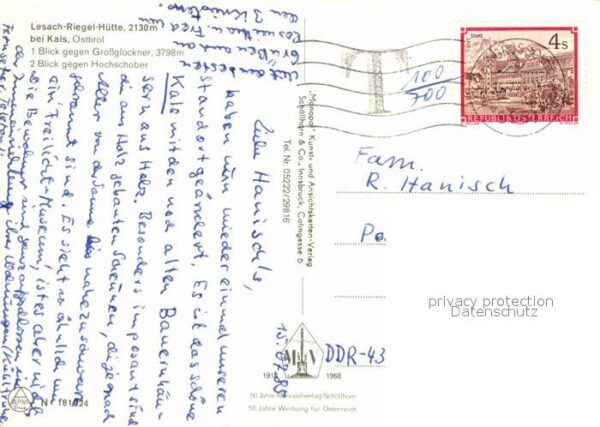 Lesach-Riegel-Hütte, 2130 m
bei Kals, Osttirol
1 Blick gegen Großglockner, 3798 m
2 Blick gegen Hochschober
Liebe Hanisch's,
haben nun wieder einmal unseren
Standort geändert. Es ist das schöne
Kals mit den noch alten Bauernhäu-
sern aus Holz. Besonders imposant sind
die aus Holz gebauten Scheunen, die je nach
Alter von der Sonne bis nahezu schwarz
gebrannt sind. Es sieht so ähnlich wie
ein Freilicht-Museum, ist es aber nicht
die Bewohner sind ganz aufgeschlossen und
der Inneneinrichtung ihrer Wohnungen (Kühltruhe
Fernseher, Telefon
Mit den besten
Grüßen auch an
„Monopol" Kunst- und Ansichtskarten-Verlag
Schöllhorn & Co., Innsbruck, Colingasse 6
Tel. Nr. 05222/29816
T
100
700
4 S
STIFT STAMS
REPUBLIK ÖSTERREICH
Fam.
R. Hanisch
Po
DDR-43
15.07.86
M V
1918 1968
50 Jahre Monopolverlag Schöllhorn
50 Jahre Werbung für Österreich
N 181/124
privacy protection
Datenschutz